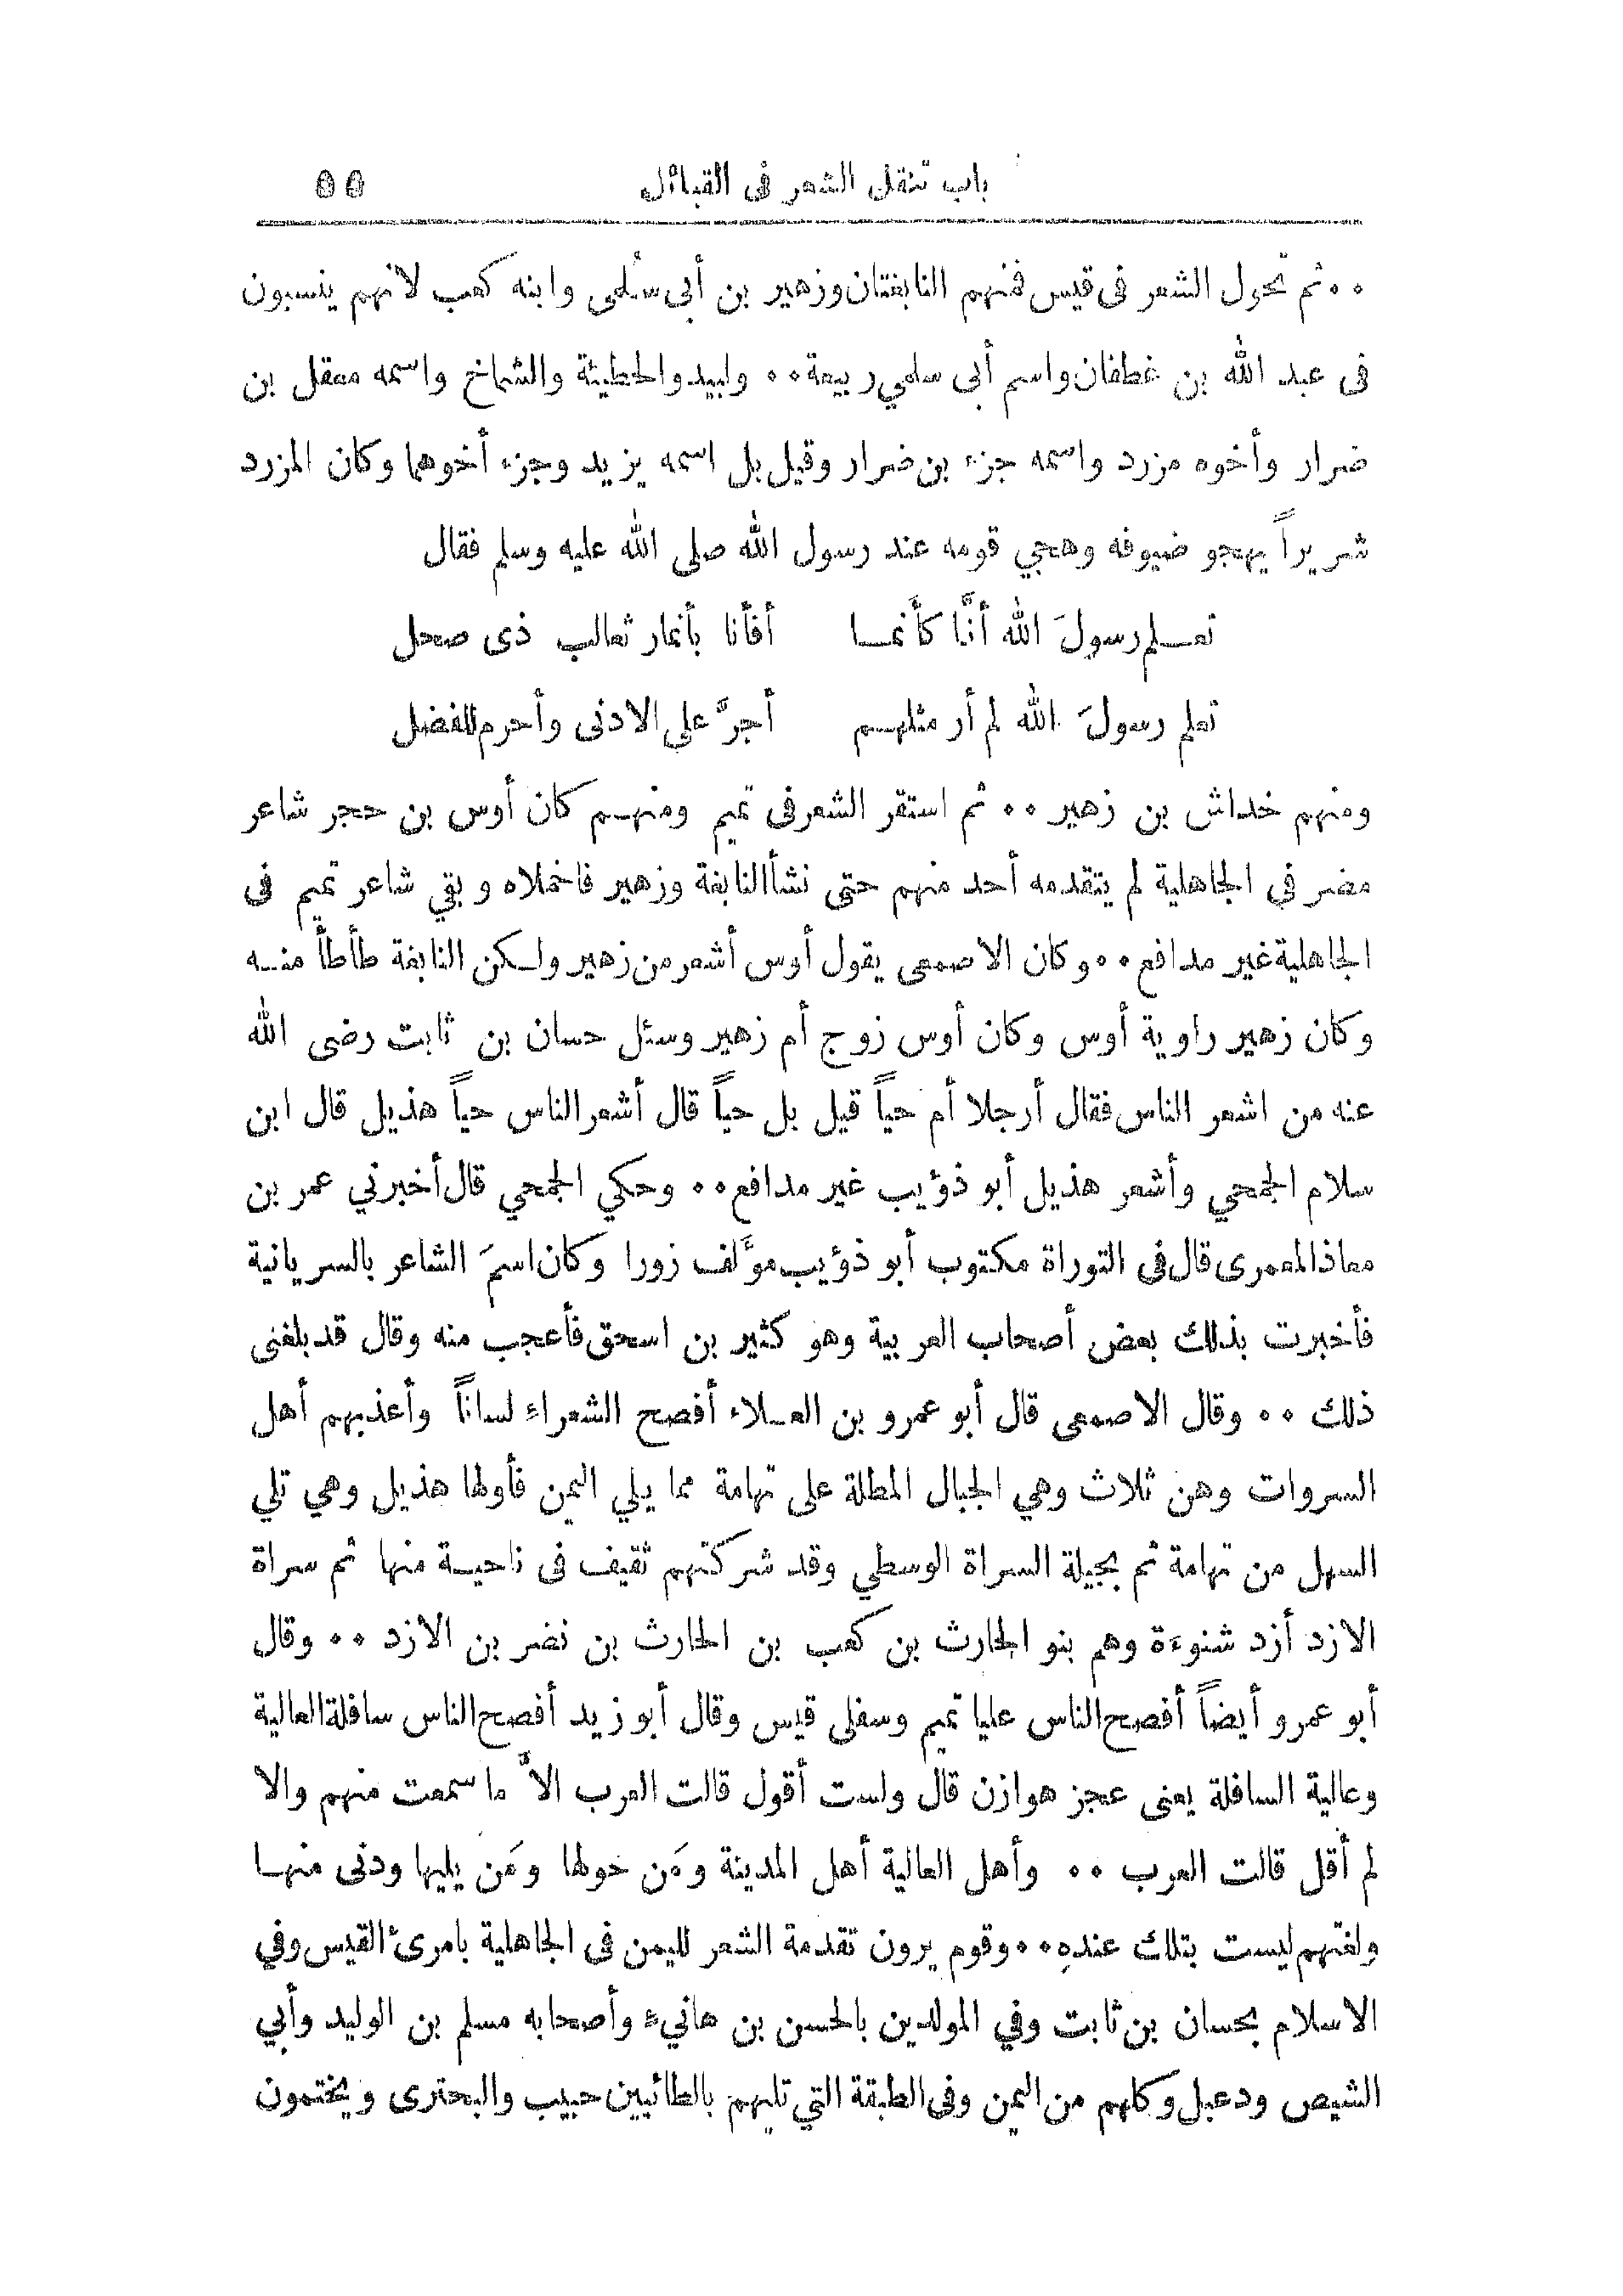 باب تنقل الشعر فى القبائل ٥٥
٠٠ ثم تحول الشعر فى قيس فمنهم النابغتان وزهير بن أبى سُلمى وابنه كعب لانهم ينسبون
فى عبد الله بن غطفان واسم أبى سلمي ربيعة ٠٠ ولبيد والحطيئة والشماخ واسمه معقل بن
ضرار وأخوه مزرد واسمه جزء بن ضرار وقيل بل اسمه يزيد وجزء أخوهما وكان المزرد
شريراً يهجو ضيوفه وهجي قومه عند رسول الله صلى الله عليه وسلم فقال
تعلم رسولَ الله أنَّا كأَنما أفأنا بأنمار ثعالب ذى صحل
تعلم رسولَ الله لم أر مثلهم أجرَّ على الادنى وأحرم للفضل
ومنهم خداش بن زهير ٠٠ ثم استقر الشعر فى تميم ومنهم كان أوس بن حجر شاعر
مضر في الجاهلية لم يتقدمه أحد منهم حتى نشأ النابغة وزهير فاخملاه وبقي شاعر تميم فى
الجاهلية غير مدافع ٠٠ وكان الاصمعى يقول أوس أشعر من زهير ولكن النابغة طأطأ منه
وكان زهير راوية أوس وكان أوس زوج أم زهير وسئل حسان بن ثابت رضى الله
عنه من اشعر الناس فقال أرجلا أم حياً قيل بل حياً قال أشعر الناس حياً هذيل قال ابن
سلام الجمحي وأشعر هذيل أبو ذؤيب غير مدافع ٠٠ وحكي الجمحي قال أخبرني عمر بن
معاذ المعمرى قال فى التوراة مكتوب أبو ذؤيب مؤَلف زورا وكان اسمَ الشاعر بالسريانية
فأخبرت بذلك بعض أصحاب العربية وهو كثير بن اسحق فأعجب منه وقال قد بلغنى
ذلك ٠٠ وقال الاصمعى قال أبو عمرو بن العلاء أفصح الشعراءِ لساناً وأعذبهم أهل
السروات وهن ثلاث وهي الجبال المطلة على تهامة مما يلي اليمن فأولها هذيل وهي تلي
السهل من تهامة ثم بجيلة السراة الوسطي وقد شركتهم ثقيف فى ناحية منها ثم سراة
الازد أزد شنوءة وهم بنو الحارث بن كعب بن الحارث بن نضر بن الازد ٠٠ وقال
أبو عمرو أيضاً أفصح الناس عليا تميم وسفلى قيس وقال أبو زيد أفصح الناس سافلة العالية
وعالية السافلة يعنى عجز هوازن قال ولست أقول قالت العرب الاَّ ما سمعت منهم والا
لم أقل قالت العرب ٠٠ وأهل العالية أهل المدينة ومَن حولها ومَن يليها ودنى منها
ولغتهم ليست بتلك عندهِ ٠٠ وقوم يرون تقدمة الشعر لليمن فى الجاهلية بامرئ القيس وفي
الاسلام بحسان بن ثابت وفي المولدين بالحسن بن هانيء وأصحابه مسلم بن الوليد وأبي
الشيص ودعبل وكلهم من اليمن وفى الطبقة التي تليهم بالطائيين حبيب والبحترى ويختمون